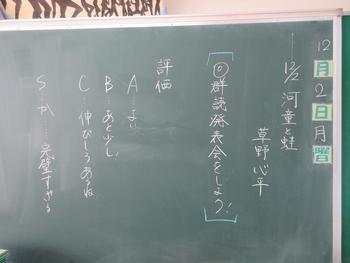 12月2日月曜
12/2 河童と蛙
草野心平
◎群読発表会をしよう!
評価
A…よい
B…あと少し
C…伸びしろあるね
S…か……完璧すぎる